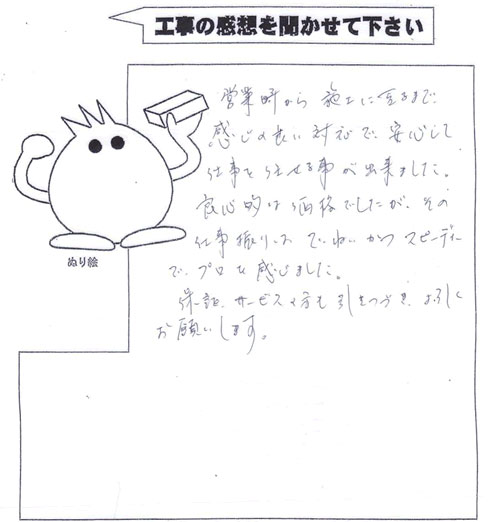 工事の感想を聞かせて下さい
営業時から施工に至るまで
感じの良い対応で、安心して
仕事を任せる事が出来ました。
良心的な価格でしたが、その
仕事振りは、ていねいかつスピーディー
で、プロを感じました。
保証、サービスの方も引きつづき、よろしく
お願いします。
ぬり絵